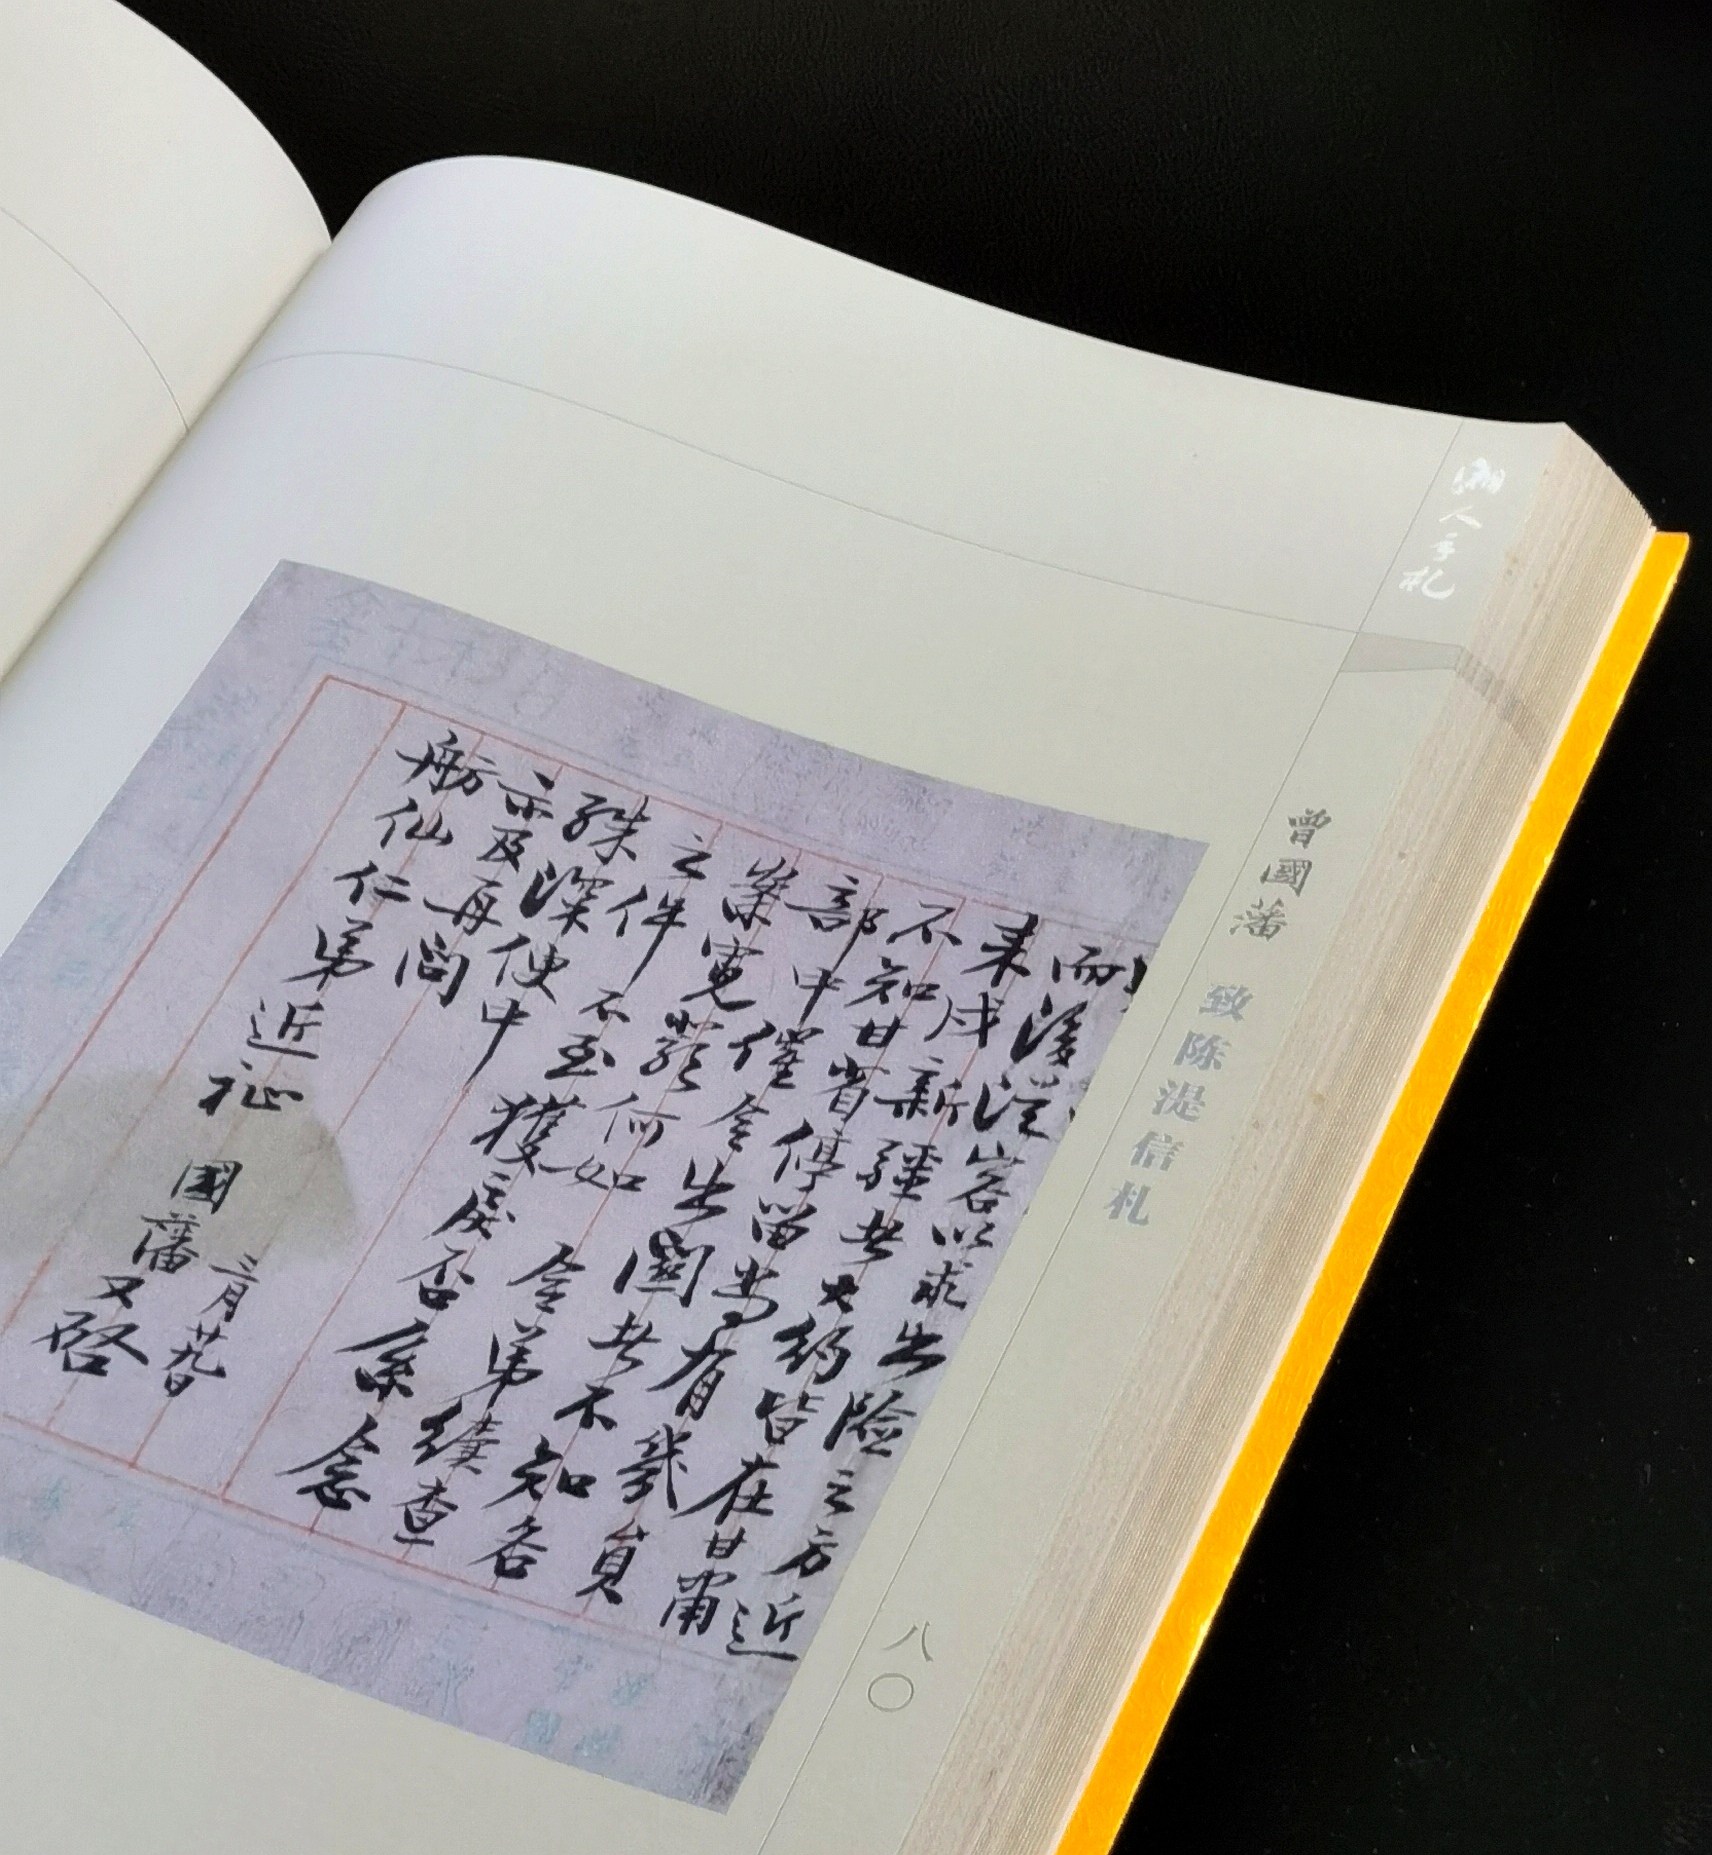 湘人手札
曾國藩 致陳湜信札
八〇
而後從容以求出險之方近
来戍新疆者大約皆在甘肅
不知甘省停留尚有幾員
部中催令出關者不知否
案寬嚴何如 舍弟續查
之件不至獲戾否系念
殊深便中
示及再問
舫仙仁弟近祉 國藩又啓
三月廿九日